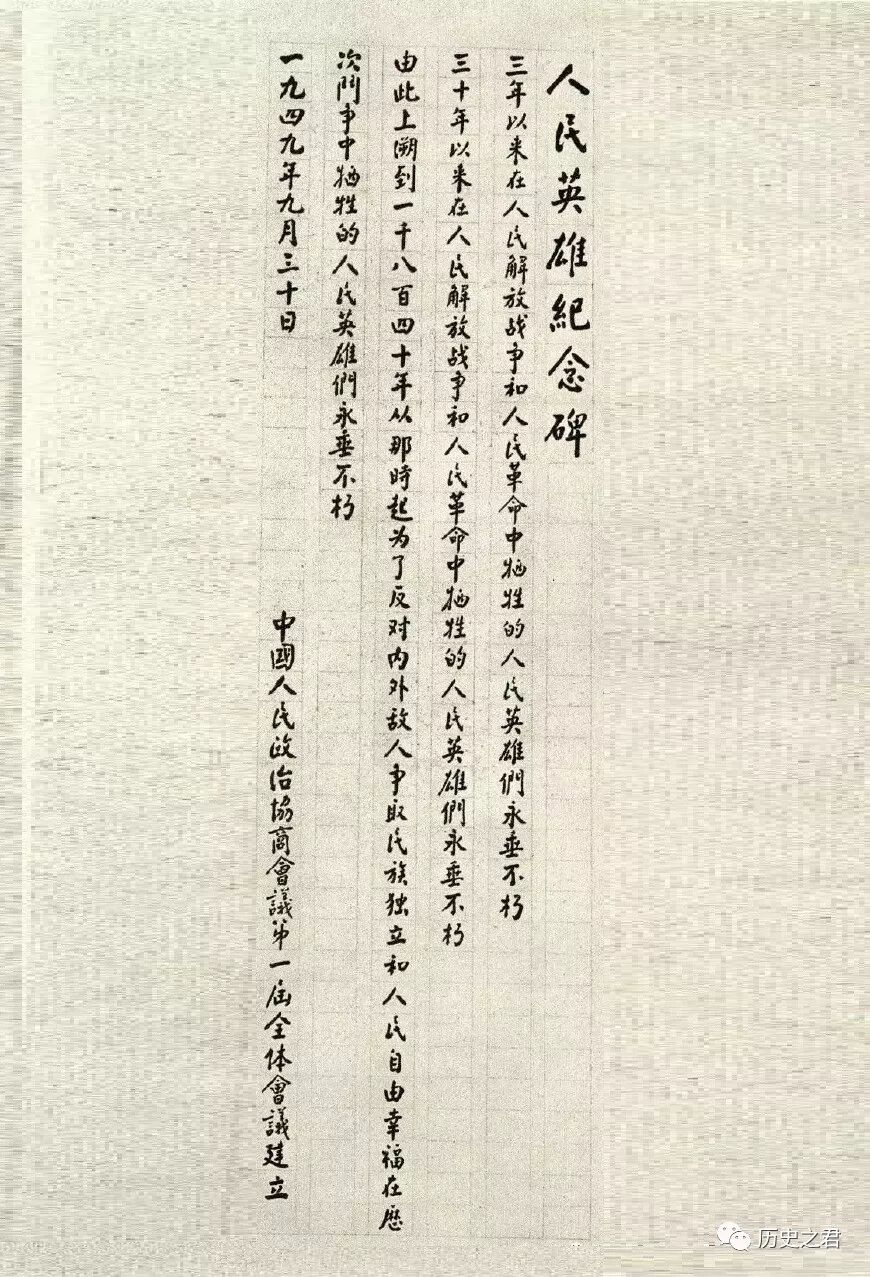 人民英雄紀念碑
三年以来在人民解放战争和人民革命中牺牲的人民英雄們永垂不朽
三十年以来在人民解放战争和人民革命中牺牲的人民英雄們永垂不朽
由此上溯到一千八百四十年从那時起为了反对内外敌人争取民族独立和人民自由幸福在歷
次鬥争中牺牲的人民英雄們永垂不朽
一九四九年九月三十日
中國人民政治協商會議第一届全体會議建立
历史之君